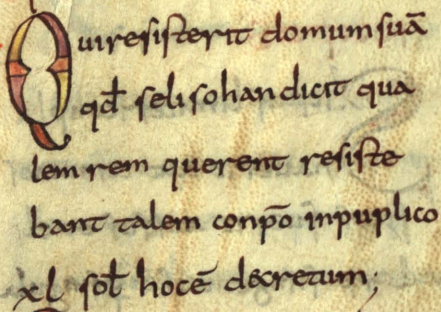 Qui resisterit domum suā
qđ seli sohan dicit qua
lem rem querent resiste
bant talem conp̄o in puplico
xl sol hoc ē decretum;